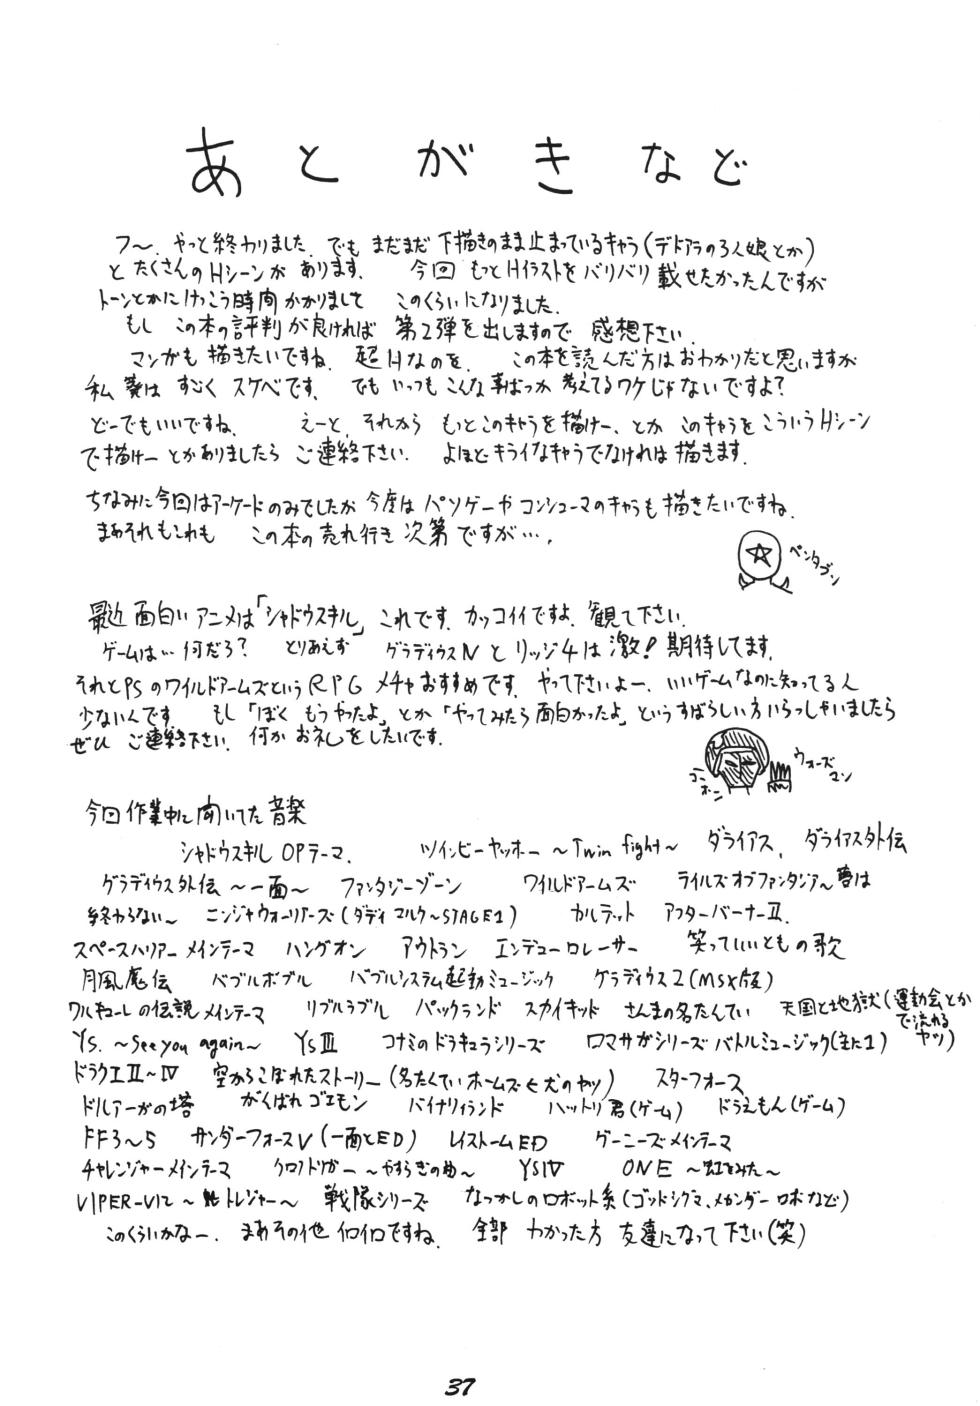 あとがきなど
フ〜、やっと終わりました。でも まだまだ 下描きのまま止まっているキャラ(デドアラの3人娘とか)
と たくさんのHシーンが あります。 今回 もっとHイラストを バリバリ 載せたかったんですが
トーンとかにけっこう時間かかりまして このくらいになりました。
もし この本の評判が良ければ 第2弾を出しますので 感想下さい。
マンガも 描きたいですね。超Hなのを。 この本を読んだ方はおわかりだと思いますが
私 はすごく スケベです。 でも いっつも こんな事ばっか 考えてるワケじゃないですよ?
どーでもいいですね。 えーと、それから もっとこのキャラを描けー、とか このキャラを こういうHシーン
で描けー とかありましたら ご連絡下さい。 よほどキライなキャラでなければ 描きます。
ちなみに今回はアーケードのみでしたが 今度は パソゲーや コンシューマのキャラも 描きたいですね。
まあそれもこれも この本の 売れ行き 次第 ですが…。
ペンタゴン
最近 面白いアニメは「シャドウスキル」 これです。カッコイイですよ。観て下さい。
ゲームは… 何だろ? とりあえず グラディウスⅣ と リッジ4は 激!期待してます。
それとPSのワイルドアームズという RPG メチャおすすめです。やって下さいよー。いいゲームなのに知ってる人
少ないんです。 もし「ぼく もうやったよ」とか「やってみたら面白かったよ」というすばらしい方いらっしゃいましたら
ぜひ ご連絡下さい。何か お礼をしたいです。
コーホー
ウォーズマン
今回 作業中に聞いてた 音楽
シャドウスキル OPテーマ、 ツインビーヤッホー 〜Twin fight〜 ダライアス、ダライアス外伝
グラディウス外伝 〜一面〜 ファンタジーゾーン ワイルドアームズ テイルズオブファンタジア〜夢は
終わらない〜 ニンジャウォーリアーズ(ダディ マルク〜STAGE1) カルテット アフターバーナーⅡ、
スペースハリアー メインテーマ ハングオン アウトラン エンデューロレーサー 笑っていいとも の歌
月風魔伝 バブルボブル バブルシステム起動ミュージック グラディウス2(MSX版)
ワルキューレの伝説 メインテーマ リブルラブル パックランド スカイキッド さんまの名たんてい 天国と地獄(運動会とか
で流れる
ヤツ)
Ys. 〜See you again〜 YsⅢ コナミのドラキュラシリーズ ロマサガシリーズ バトルミュージック(主に1)
ドラクエⅡ〜Ⅳ 空からこぼれたストーリー(名たんていホームズ 犬のヤツ) スターフォース
ドルアーガの塔 がんばれゴエモン バイナリィランド ハットリ君(ゲーム) ドラえもん(ゲーム)
FF3〜5 サンダーフォースⅤ(一面とED) レイストームED グーニーズ メインテーマ
チャレンジャーメインテーマ クロノトリガー 〜やすらぎの曲〜 YSⅣ ONE 〜虹をみた〜
VIPER-V12 〜 トレジャー〜 戦隊シリーズ なつかしのロボット系(ゴッドシグマ、メカンダーロボなど)
このくらいかなー。まあその他 イロイロですね。 全部 わかった方 友達になって下さい(笑)
37